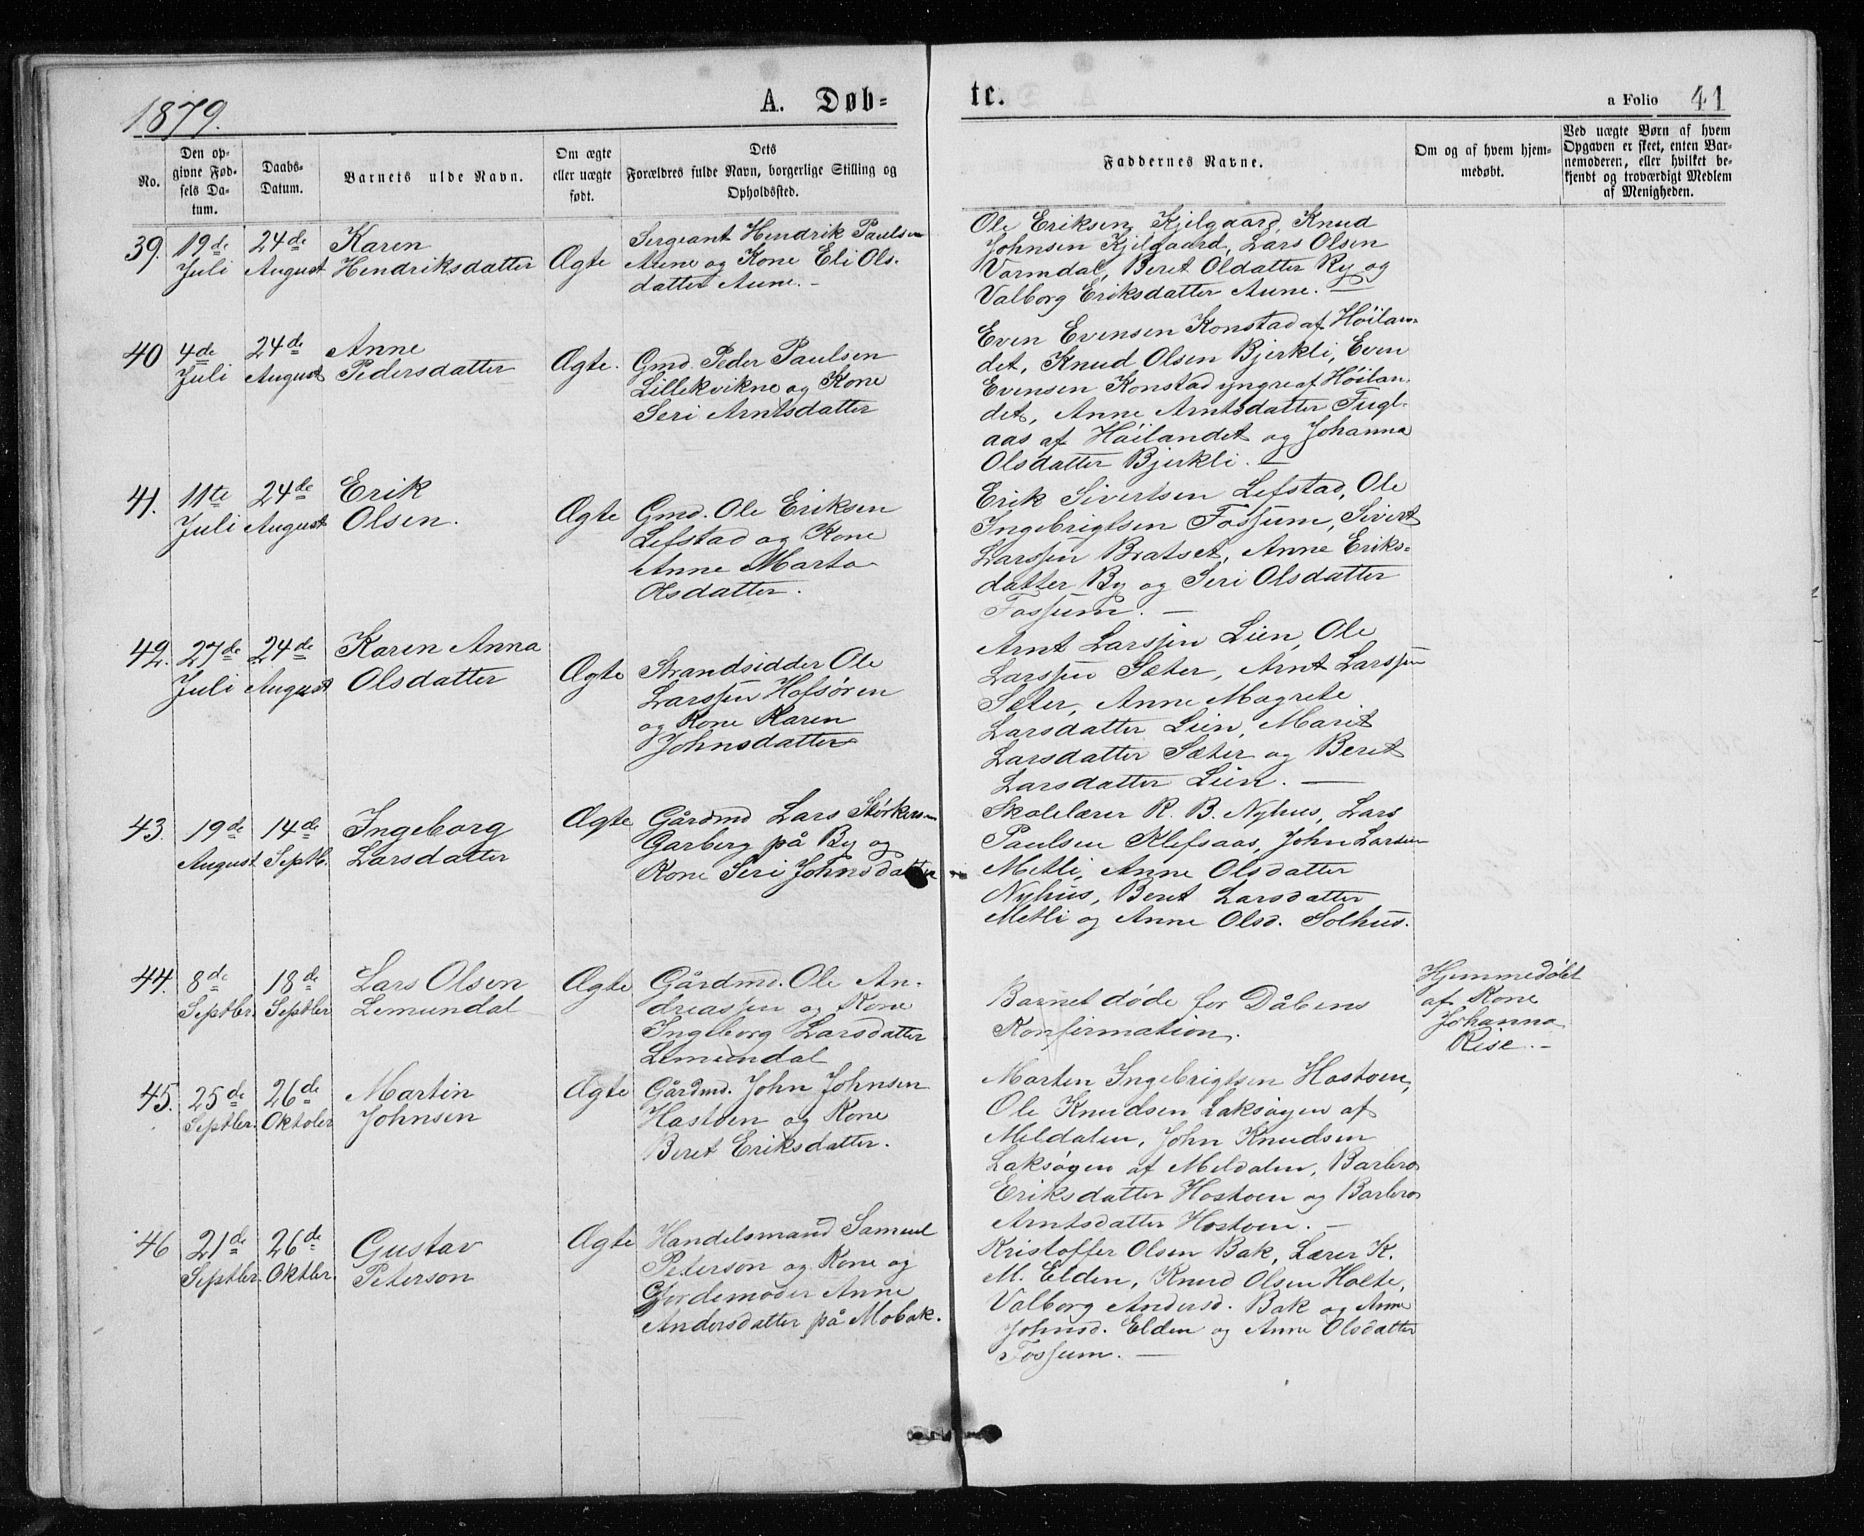 1879.
A. Døb=
te.
a Folio 41
No.
Den op-
givne Fød-
sels Da-
tum.
Daabs-
Datum.
Barnets ulde Navn.
Om ægte
eller uægte
født.
Dets
Forældres fulde Navn, borgerlige Stilling og
Opholdssted.
Faddernes Navne.
Om og af hvem hjem-
medøbt.
Ved uægte Børn af hvem
Opgaven er skeet, enten Bar-
nemoderen, eller hvilket be-
kjendt og troværdigt Medlem
af Menigheden.
39. 19de
Juli
24de
August
Karen
Hendriksdatter
Ægte
Sergeant Hendrik Paulsen
Aune og Kone Eli Ols-
datter Aune. -
Ole Eriksen Kjelgaard, Knud
Johnsen Kjelgaard, Lars Olsen
Vormdal, Beret Oldatter Ry og
Valborg Eriksdatter Aune. —
40 4de
Juli
24de
August
Anne
Pedersdatter
Ægte.
Gmd. Peder Paulsen
Lillekvikne og Kone
Seri Arntsdatter
Even Evensen Konstad af Höilan-
det, Knud Olsen Bjerkli, Even
Evensen Konstad yngre af Höilan-
det, Anne Arntsdatter Fugl-
aas af Höilandet og Johanna
Olsdatter Bjerkli. —
41. 11te
Juli
24de
August
Erik
Olsen.
Ægte
Gmd. Ole Eriksen
Lefstad og Kone
Anne Marta
Olsdatter.
Erik Sivertsen Lefstad, Ole
Ingebrigtsen Fossum, Sivert
Larssen Bratset, Anne Eriks-
datter By og Seri Olsdatter
Fossum. —
42. 27de
Juli
24de
August
Karen Anna
Olsdatter
Ægte
Strandsidder Ole
Larssen Hofsøren
og Kone Karen
Johnsdatter
Arnt Larssen Lien, Ole
Larssen Sæter, Arnt Larssen
Sæter, Anne Magrete
Larsdatter Lien, Marit
Larsdatter Sæter og Beret
Larsdatter Lien. —
43. 19de
August
14de
Septb.
Ingeborg
Larsdatter
Ægte
Gårdmd Lars Størkersen
Garberg på By og
Kone Seri Johnsdatter
Skolelærer R. B. Nyhus, Lars
Paulsen Klefsaas, John Larsen
Metli, Anne Olsdatter
Nyhus, Beret Larsdatter
Metli og Anne Olsd. Solhus.
44. 8de
Septbr.
18de
Septbr
Lars Olsen
Lemundal
Ægte
Gårdmd. Ole An-
dreassen og Kone
Ingeborg Larsdatter
Lemundal
Barnet døde før Dåbens
Konfirmation.
Hjemmedøbt
af Kone
Johanna
Rise. -
45. 25de
Septbr.
26de
Oktober
Martin
Johnsen
Ægte
Gårdmd. John Johnsen
Hostoen og Kone
Beret Eriksdatter.
Morten Ingebrigtsen Hostoen,
Ole Knudsen Laksøyen af
Meldalen, John Knudsen
Laksøyen af Meldalen, Barbro
Eriksdatter Hostoen og Barbro
Arntsdatter Hostoen. —
46 21de
Septbr.
26de
Oktbr.
Gustav
Peterson
Ægte
Handelsmand Samuel
Peterson og Kone og
Gjordemoder Anne
Andersdatter på Mobak.
Kristoffer Olsen Bak, Lærer K.
M. Elden, Knud Olsen Holte,
Valborg Andersd. Bak og Anne
Johnsd. Elden og Anne Olsdatter
Fossum. —